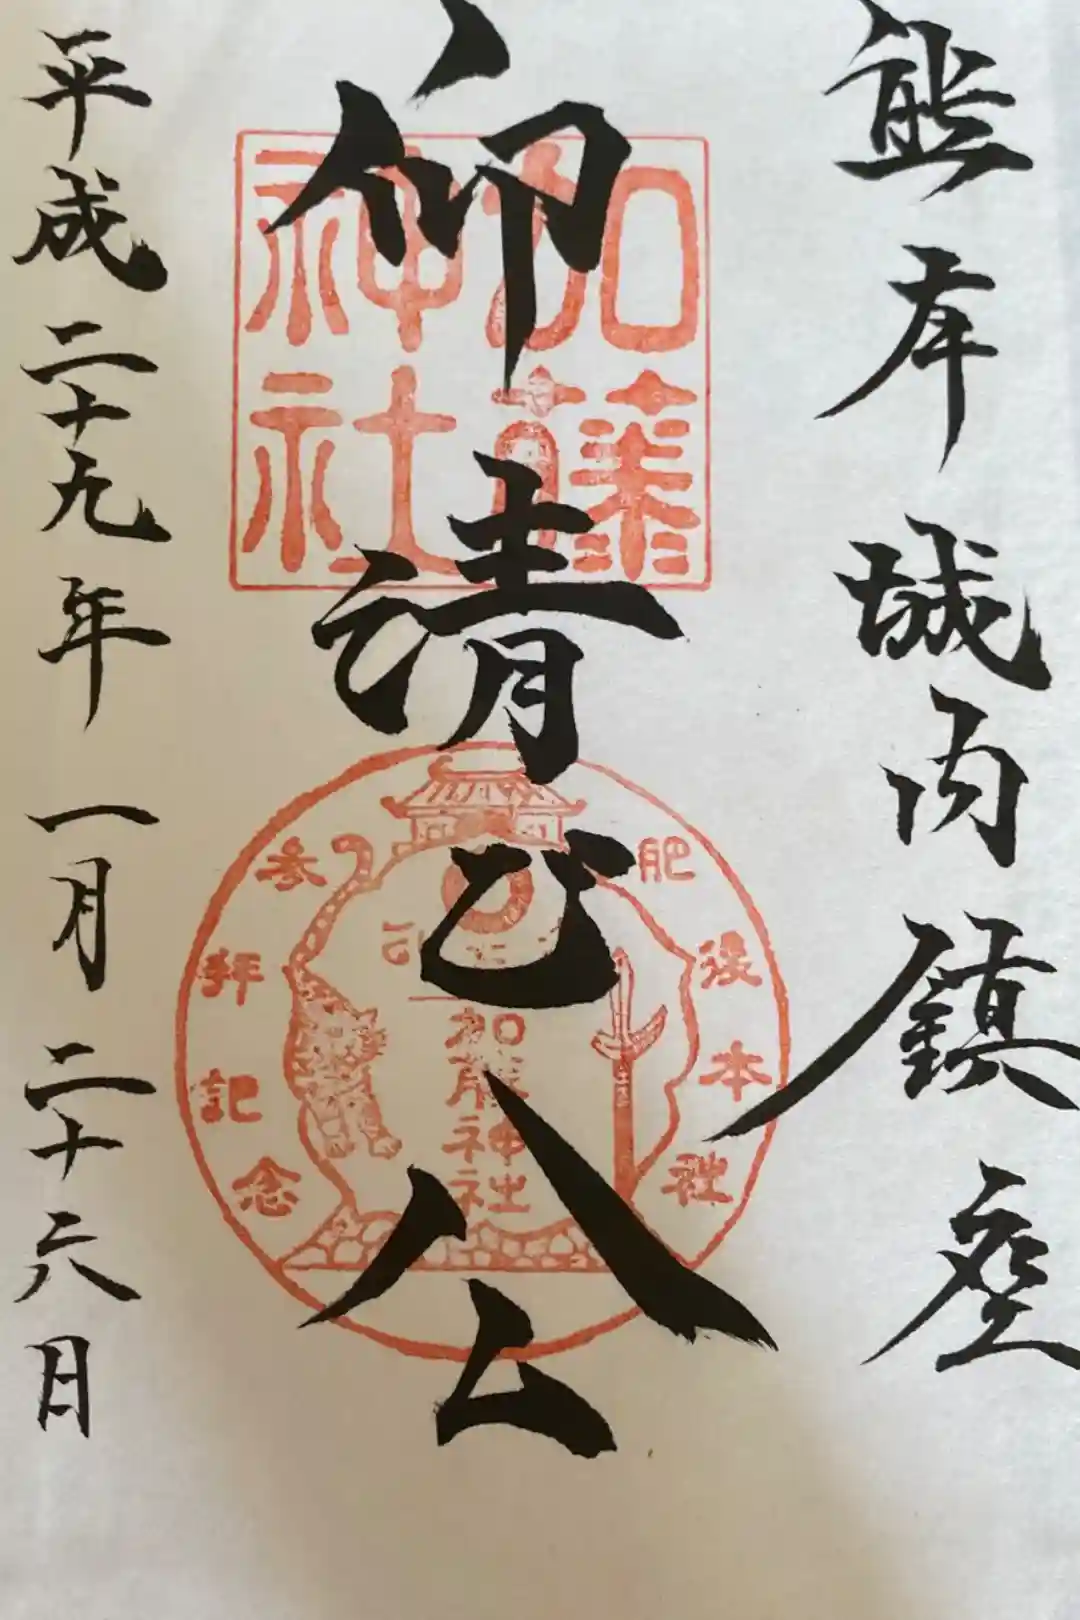 熊本城内鎮座
仰清正公
平成二十九年一月二十六日
加藤
神社
肥後本社
参拝記念
加藤神社